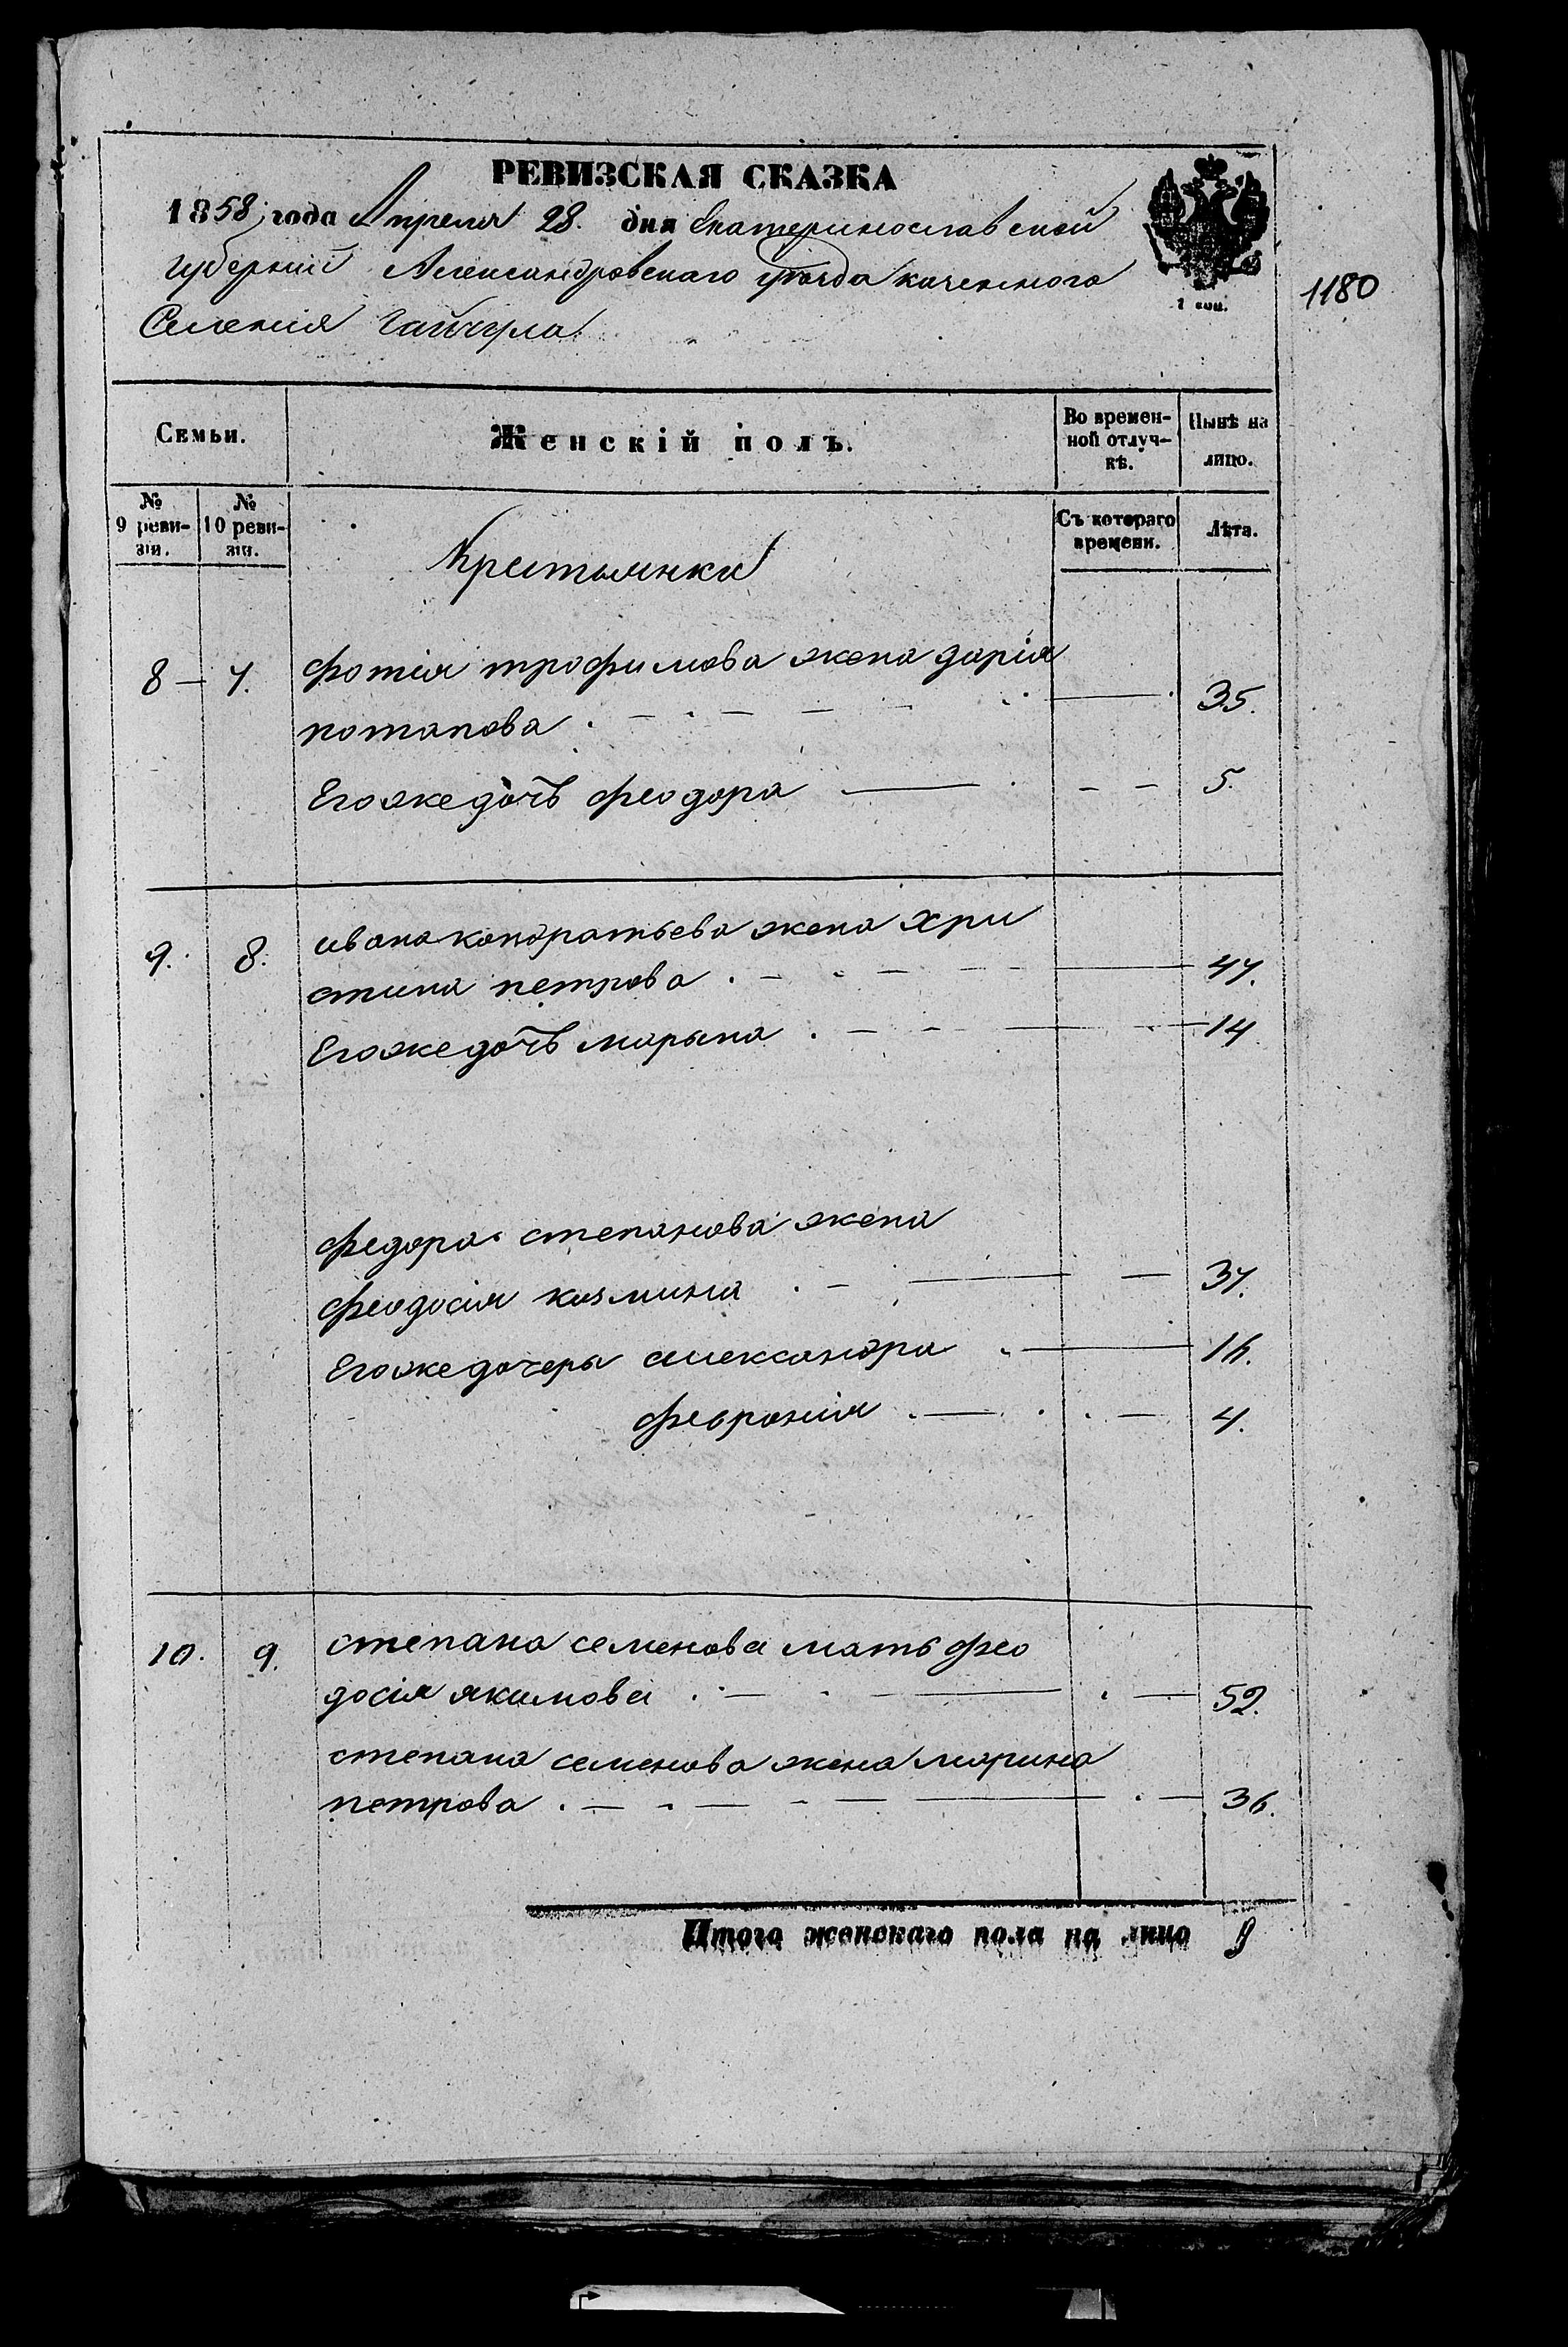 РЕВИЗСКАЯ СКАЗКА
1858 года Апреля 28. дня Екатеринославской
губернии Александровскаго уезда казенного
Селения Гайчула
1 коп.
1180
Семьи.
Женскій полъ.
Во времен-
ной отлуч-
кѣ.
Нынѣ на
лицо.
№
9 реви-
зіи.
№
10 реви-
зіи.
Съ котораго
времени.
Лѣта.
Крестьянки
8 — 7. фотія трофимова жена дарія
потапова 35.
Егоже дочь феодора 5.
9. 8. ивана кондратьева жена Хри
стина петрова 47.
Егоже дочь марына 14
федора степанова жена
феодосия козмина 37.
Егоже дочеры александра 16.
феврония 4.
10. 9. степана семенова мать фео
досія якимова 52.
степана семенова жена марина
петрова 36.
Итого женскаго пола на лицо 9